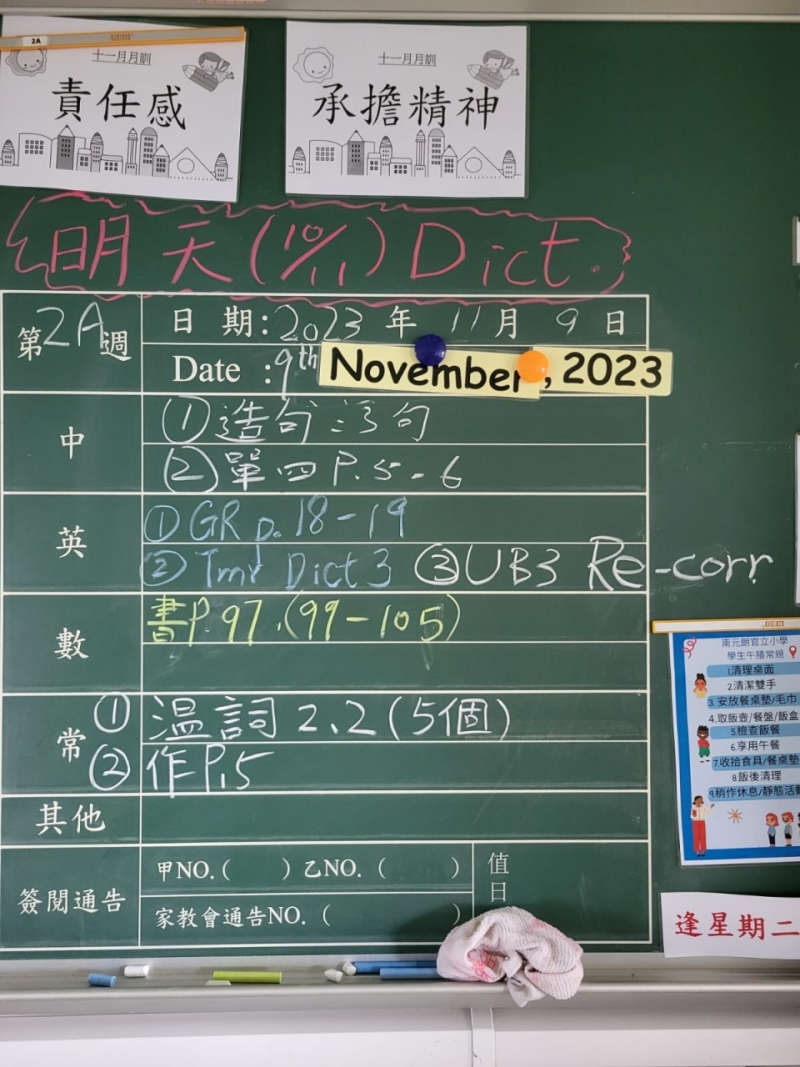 2A
十一月月訓
責任感
十一月月訓
承擔精神
明天(10/11) Dict.
第2A週
日 期:2023 年 11 月 9 日
Date :9th November, 2023
中
①造句
句
②單四 P.5-6
英
①GR p.18-19
②Tmr Dict 3 ③UB3 Re-corr
數
書P.97.(99-105)
常
①溫詞2.2(5個)
②作P.5
其他
簽閱通告
甲NO.( )乙NO.( )
家教會通告NO.( )
值日
南元朗官立小學
學生午膳常規
1清理桌面
2清潔雙手
3 安放餐桌墊/毛巾
4.取飯壺/餐盤/飯盒
5檢查飯餐
6.享用午餐
7.收拾食具/餐桌墊
8飯後清理
9.稍作休息/靜態活動
逢星期二